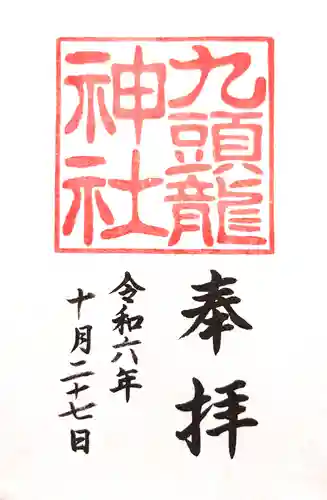 九頭龍
神社
奉拝
令和六年
十月二十七日